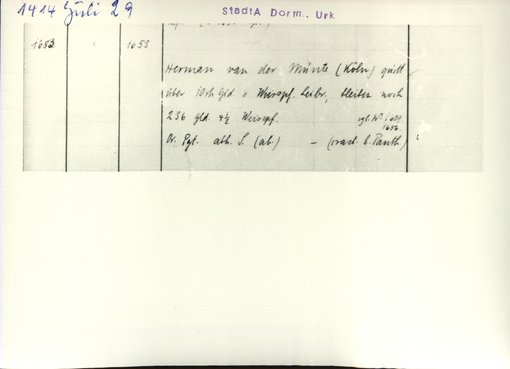 1414 Juli 29
StadtA Dortm. Urk
1683 1653
Herman van der Münte (Köln) quitt
über 10 rh Gld 6 Weisspf. Leibr., bleiben noch
236 Gld. 4½ Weisspf. vgl. Nr. 1659.
1656.
Or. Pgt. abh. S. (ab.) –